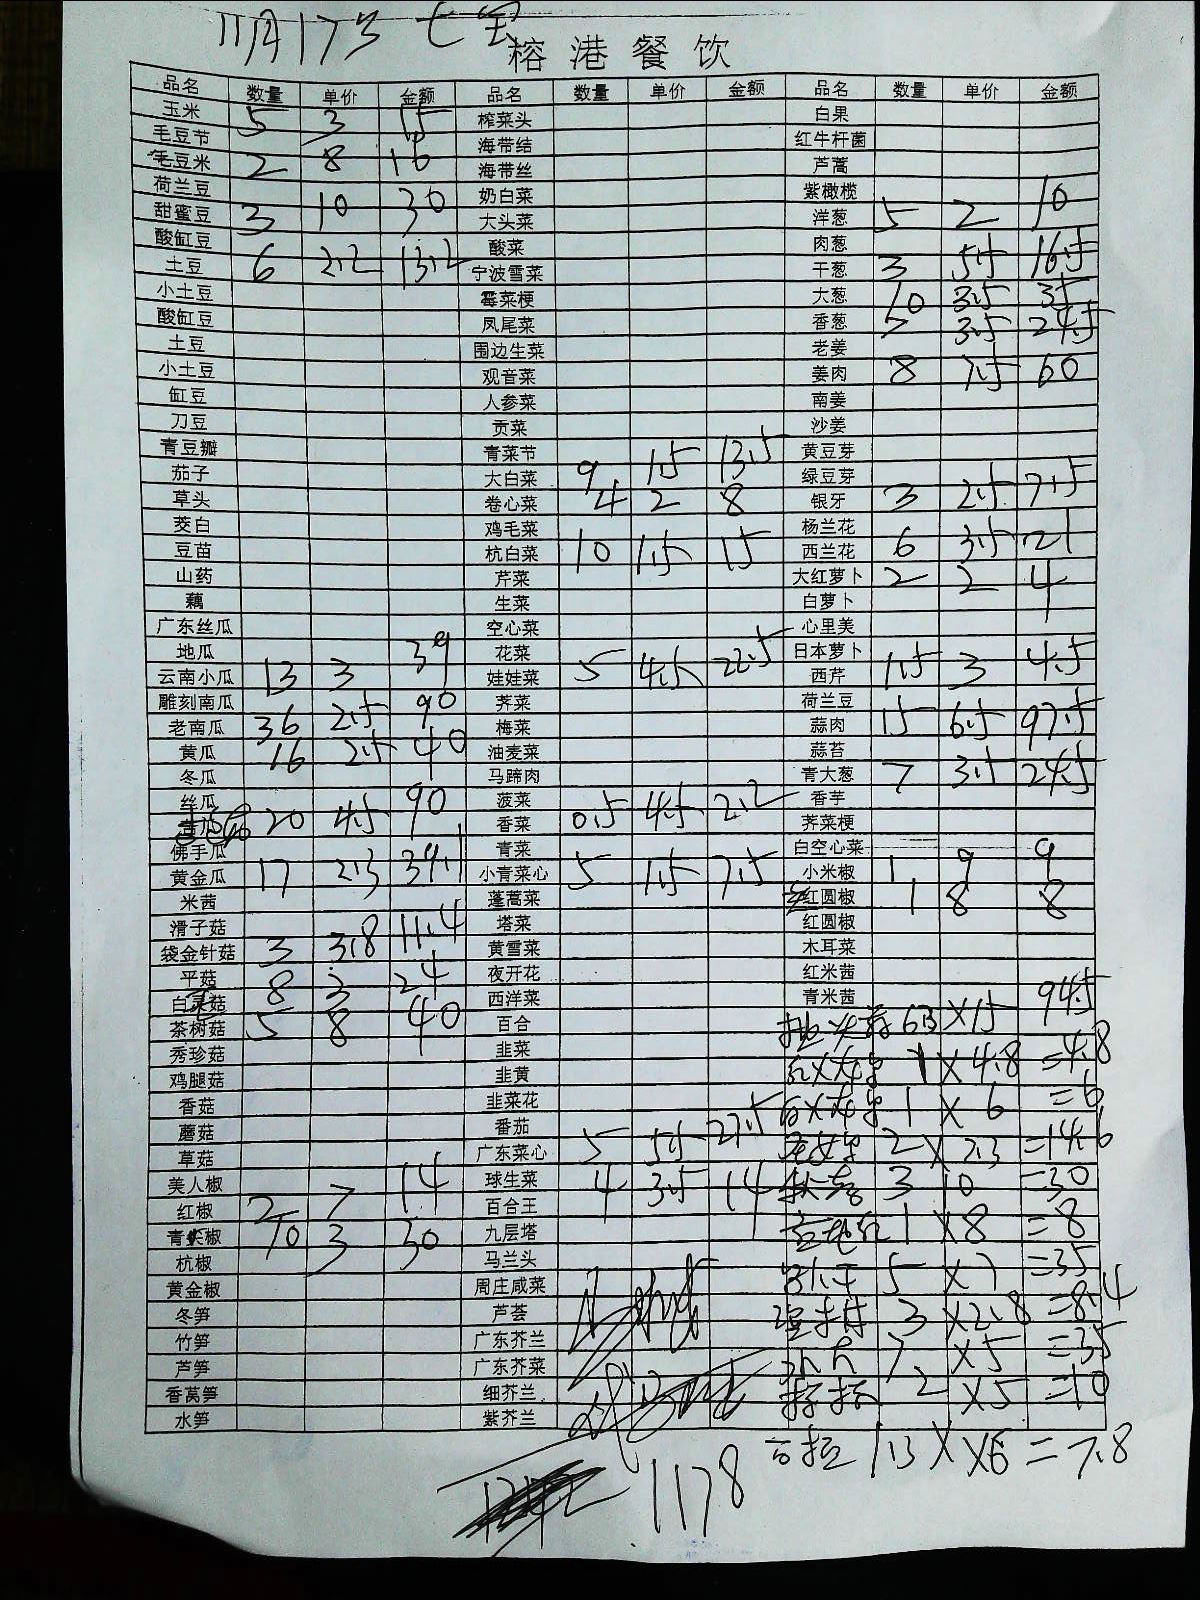 11月17号 七宝
榕港餐饮
品名 数量 单价 金额 品名 数量 单价 金额 品名 数量 单价 金额
玉米 5 3 15 榨菜头 白果
毛豆节 海带结 红牛杆菌
毛豆米 2 8 16 海带丝 芦蒿
荷兰豆 奶白菜 紫橄榄
甜蜜豆 3 10 30 大头菜 洋葱 5 2 10
酸缸豆 酸菜 肉葱
土豆 6 2.2 13.2 宁波雪菜 干葱 3 5.5 16.5
小土豆 霉菜梗 大葱 10 3.5 35
酸缸豆 凤尾菜 香葱 7 3.5 24.5
土豆 围边生菜 老姜
小土豆 观音菜 姜肉 8 7.5 60
缸豆 人参菜 南姜
刀豆 贡菜 沙姜
青豆瓣 青菜节 黄豆芽
茄子 大白菜 9 1.5 13.5 绿豆芽
草头 卷心菜 4 2 8 银牙 3 2.5 7.5
茭白 鸡毛菜 杨兰花
豆苗 杭白菜 10 1.5 15 西兰花 6 3.5 21
山药 芹菜 大红萝卜 2 2 4
藕 生菜 白萝卜
广东丝瓜 空心菜 心里美
地瓜 花菜 日本萝卜
云南小瓜 13 3 39 娃娃菜 5 4.5 22.5 西芹 1.5 3 4.5
雕刻南瓜 荠菜 荷兰豆
老南瓜 36 2.5 90 梅菜 蒜肉 15 6.5 97.5
黄瓜 16 2.5 40 油麦菜 蒜苔
冬瓜 马蹄肉 青大葱 7 3.5 24.5
丝瓜 菠菜 香芋
20 4.5 90 香菜 0.5 4.5 2.2 荠菜梗
佛手瓜 青菜 白空心菜
黄金瓜 17 2.3 39.1 小青菜心 5 1.5 7.5 小米椒 1 9 9
米茜 蓬蒿菜 红圆椒 1 8 8
滑子菇 塔菜 红圆椒
袋金针菇 3 3.8 11.4 黄雪菜 木耳菜
平菇 8 3 24 夜开花 红米茜
白灵菇 西洋菜 青米茜
茶树菇 5 8 40 百合 63 X 15 94.5
秀珍菇 韭菜 1 X 4.8 =4.8
鸡腿菇 韭黄
香菇 韭菜花 1 X 6 =6
蘑菇 番茄
草菇 广东菜心 5 5.5 27.5 2 X 7.3 =14.6
美人椒 球生菜 4 3.5 14 3 10 =30
红椒 2 7 14 百合王
青尖椒 10 3 30 九层塔 1 X 8 =8
杭椒 马兰头
黄金椒 周庄咸菜 5 X 7 =35
冬笋 芦荟 3 X 2.8 =8.4
竹笋 广东芥兰
芦笋 广东芥菜 7 X 5 =35
香莴笋 细芥兰 2 X 5 =10
水笋 紫芥兰
1.3 X X6 = 7.8
1178